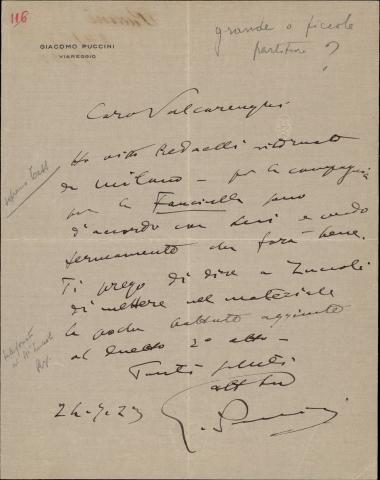 116
grande o piccola
partitura?
GIACOMO PUCCINI
VIAREGGIO
Caro Valcarenghi
Ho visto Redaelli ritornato
da Milano – per la compagnia
per la Fanciulla sono
d'accordo con lui e credo
fermamente che farà bene.
Ti prego di dire a Zuccoli
di mettere nel materiale
le poche battute aggiunte
al Duetto 2º atto –
Tanti saluti
aff tuo
G. Puccini
24.9.23